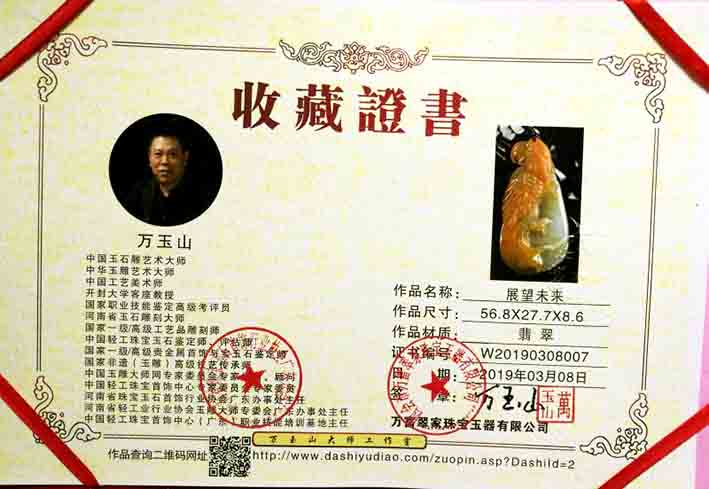 收藏證書
万玉山
中国玉石雕艺术大师
中华玉雕艺术大师
中国工艺美术师
开封大学客座教授
国家职业技能鉴定高级考评员
河南省玉石雕刻大师
国家一级/高级工艺品雕刻师
中国轻工珠宝玉石鉴定师、评估师
国家一级/高级贵金属首饰与宝玉石鉴定师
国家非遗（玉雕）高级技艺传承师
中国玉雕大师网专家委员会专家、顾问
中国轻工珠宝首饰中心专家委员会专家委员
河南省珠宝玉石首饰行业协会广东办事处主任
河南省轻工业行业协会玉雕大师专委会广东办事处主任
中国轻工珠宝首饰中心（广东）职业技能培训基地主任
作品名称：展望未来
作品尺寸：56.8X27.7X8.6
作品材质：翡翠
证书编号：W20190308007
日期：2019年03月08日
签章：万玉山
萬玉山
万富翠家珠宝玉器有限公司
万玉山大师工作室
作品查询二维码网址：http://www.dashiyudiao.com/zuopin.asp?DashiId=2